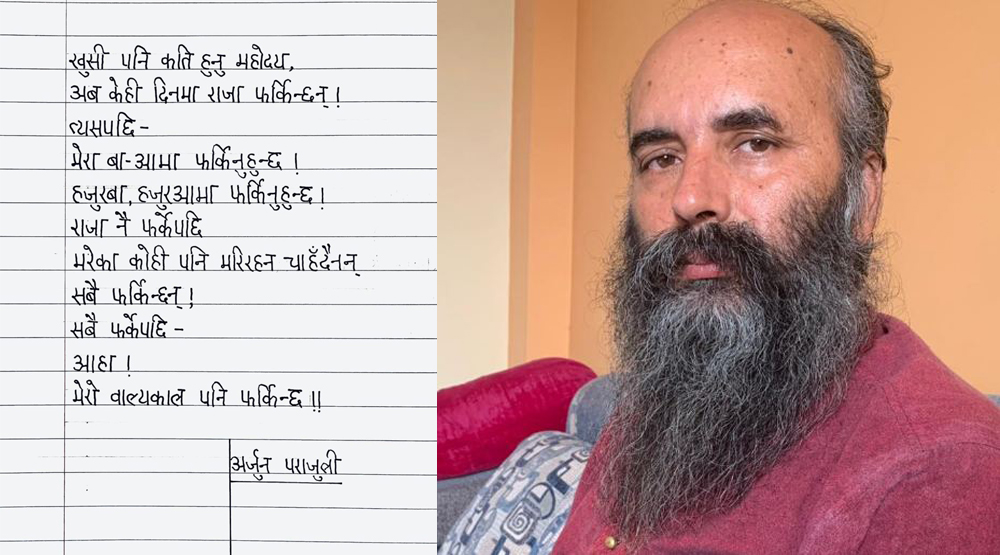 खुसी पनि कति हुनु महोदय,
अब केही दिनमा राजा फर्किन्छन्!
त्यसपछि -
मेरा बा-आमा फर्किनुहुन्छ !
हजुरबा, हजुरआमा फर्किनुहुन्छ !
राजा नै फर्केपछि
मरेका कोही पनि मरिरहन चाहँदैनन्
सबै फर्किन्छन् !
सबै फर्केपछि -
आहा !
मेरो वाल्यकाल पनि फर्किन्छ !!
अर्जुन पराजुली